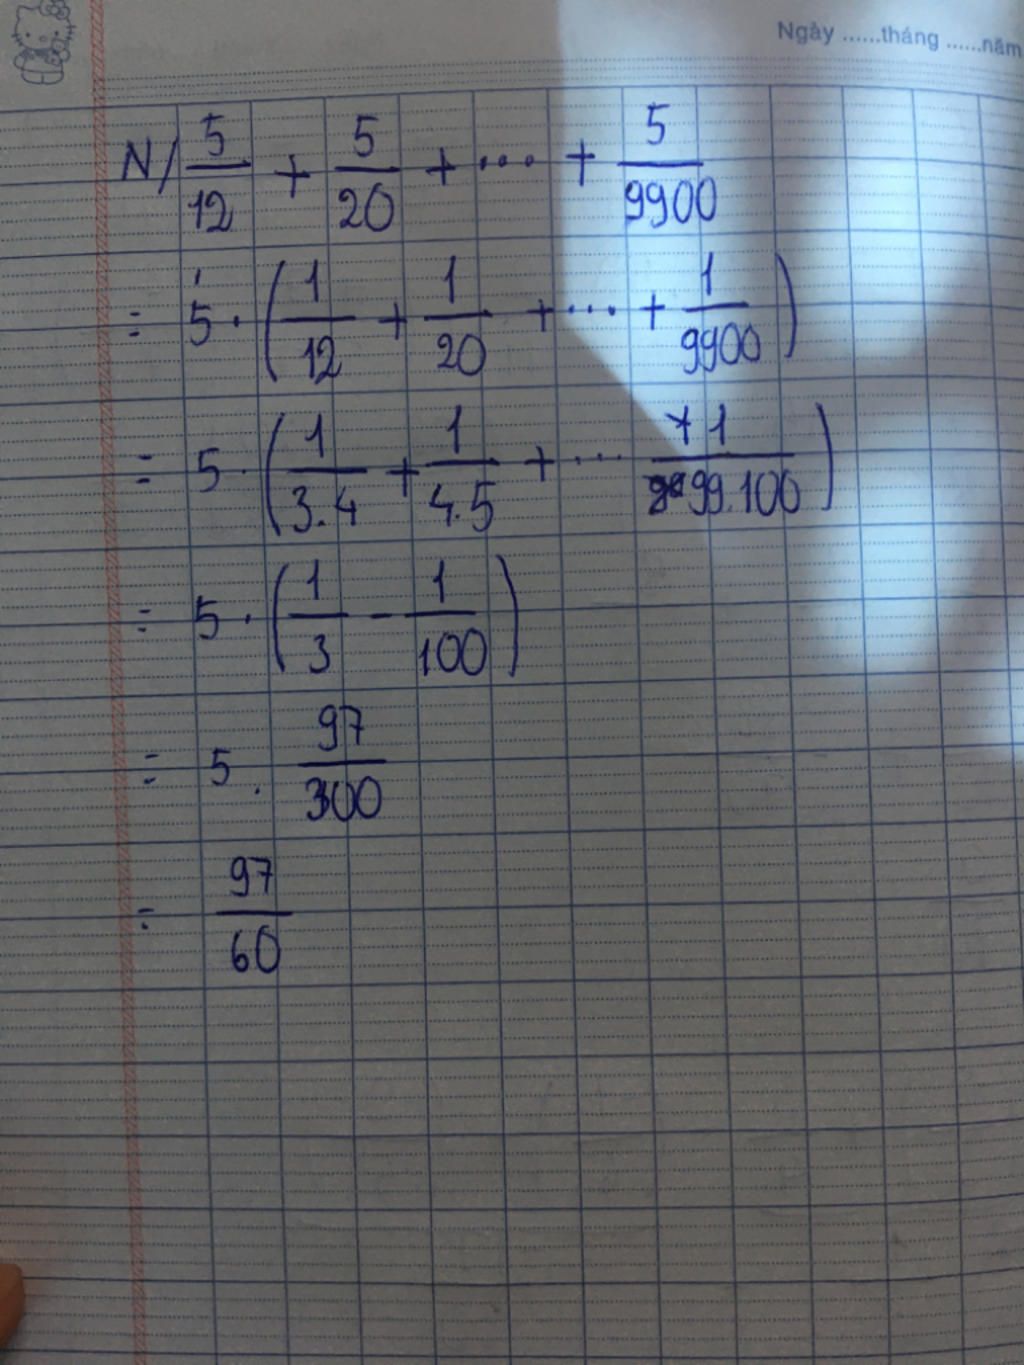 Ngày ......tháng ......năm
N/ 5/12 + 5/20 + ... + 5/9900
= 5 . ( 1/12 + 1/20 + ... + 1/9900 )
= 5 . ( 1/3.4 + 1/4.5 + ... + 1/99.100 )
= 5 . ( 1/3 - 1/100 )
= 5 . 97/300
= 97/60